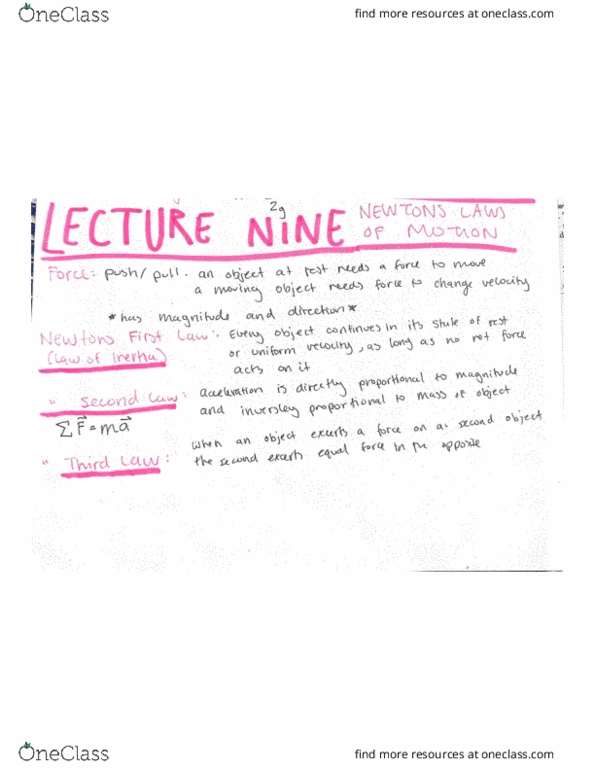 OneClass
find more resources at oneclass.com
2g
LECTURE NINE NEWTONS LAWS
OF MOTION
Force: push/pull. an object at rest needs a force to move
a moving object needs force to change velocity
*has magnitude and direction*
Newtons First Law: Every object continues in its state of rest
(Law of Inertia) or uniform velocity, as long as no net force
acts on it
" Second Law: acceleration is directly proportional to magnitude
and inversley proportional to mass of object
ΣF⃗ = ma⃗
" Third Law: when an object exerts a force on a second object
the second exerts equal force in the opposite
OneClass
find more resources at oneclass.com